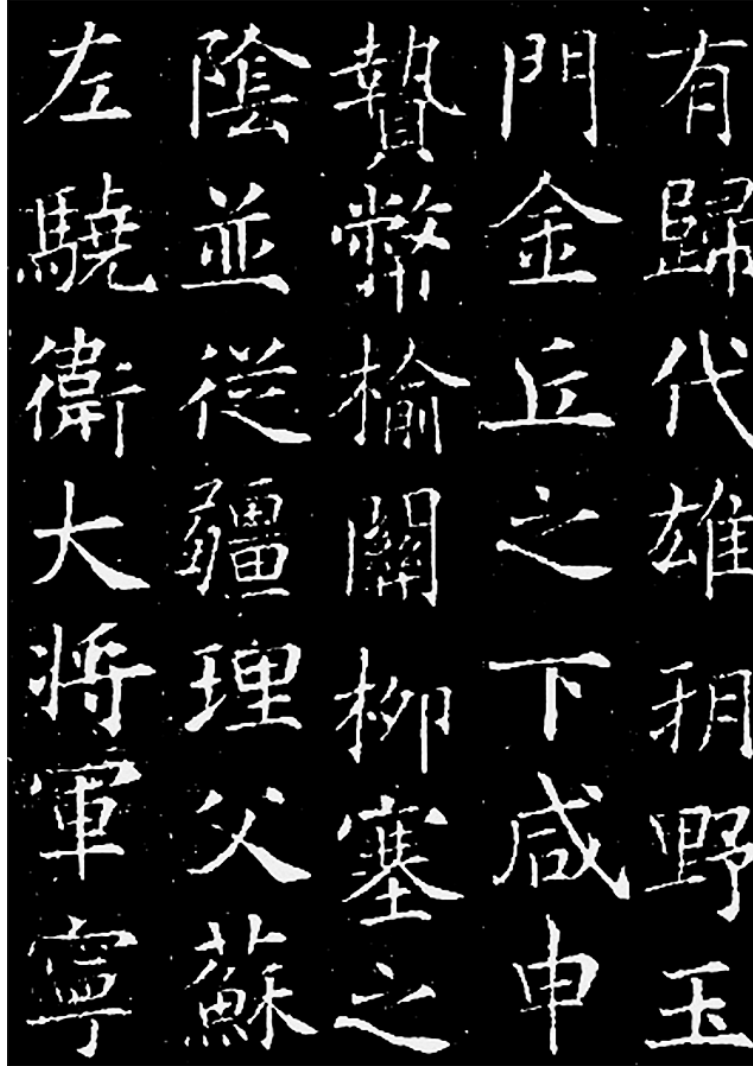 有歸代雄朔野玉
門金丘之下咸申
贄幣榆關柳塞之
陰並從疆理父蘇
左驍衛大將軍寧